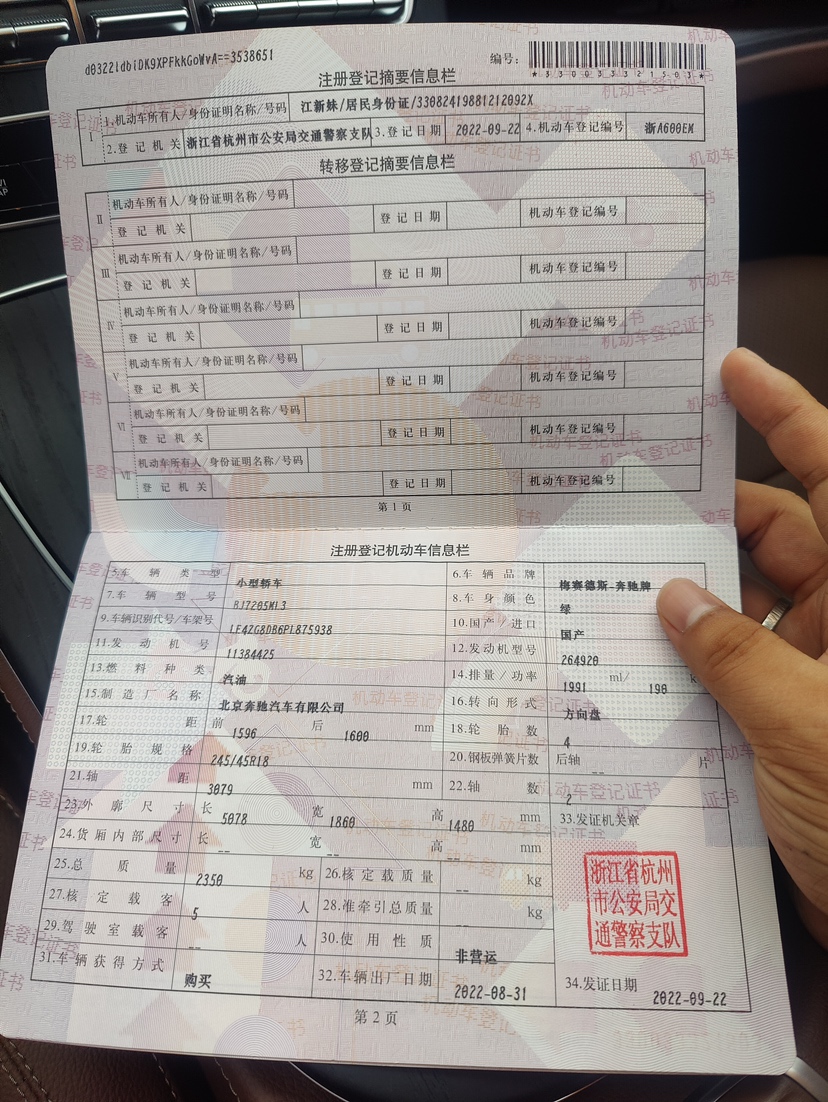 d03221dbiDK9XPFkkGoWvA==3538651
编号:
*330033321503*
注册登记摘要信息栏
I 1.机动车所有人/身份证明名称/号码 江新妹/居民身份证/33082419881212092X
2.登记机关 浙江省杭州市公安局交通警察支队 3.登记日期 2022-09-22 4.机动车登记编号 浙A600EM
转移登记摘要信息栏
II 机动车所有人/身份证明名称/号码
登记机关 登记日期 机动车登记编号
III 机动车所有人/身份证明名称/号码
登记机关 登记日期 机动车登记编号
IV 机动车所有人/身份证明名称/号码
登记机关 登记日期 机动车登记编号
V 机动车所有人/身份证明名称/号码
登记机关 登记日期 机动车登记编号
VI 机动车所有人/身份证明名称/号码
登记机关 登记日期 机动车登记编号
VII 机动车所有人/身份证明名称/号码
登记机关 登记日期 机动车登记编号
第1页
注册登记机动车信息栏
5.车辆类型 小型轿车 6.车辆品牌 梅赛德斯-奔驰牌
7.车辆型号 BJ7205ML3 8.车身颜色 绿
9.车辆识别代号/车架号 LE4ZG8DB6PL875938 10.国产/进口 国产
11.发动机号 11384425 12.发动机型号 264920
13.燃料种类 汽油 14.排量/功率 1991 ml/ 190 k
15.制造厂名称 北京奔驰汽车有限公司 16.转向形式 方向盘
17.轮距 前 1596 后 1600 mm 18.轮胎数 4
19.轮胎规格 245/45R18 20.钢板弹簧片数 后轴 -- 片
21.轴距 3079 mm 22.轴数 2
23.外廓尺寸 长 5078 宽 1860 高 1480 mm 33.发证机关章
24.货厢内部尺寸 长 -- 宽 -- 高 -- mm
25.总质量 2350 kg 26.核定载质量 -- kg
27.核定载客 5 人 28.准牵引总质量 -- kg
29.驾驶室载客 -- 人 30.使用性质 非营运
31.车辆获得方式 购买 32.车辆出厂日期 2022-08-31 34.发证日期 2022-09-22
浙江省杭州
市公安局交
通警察支队
第2页